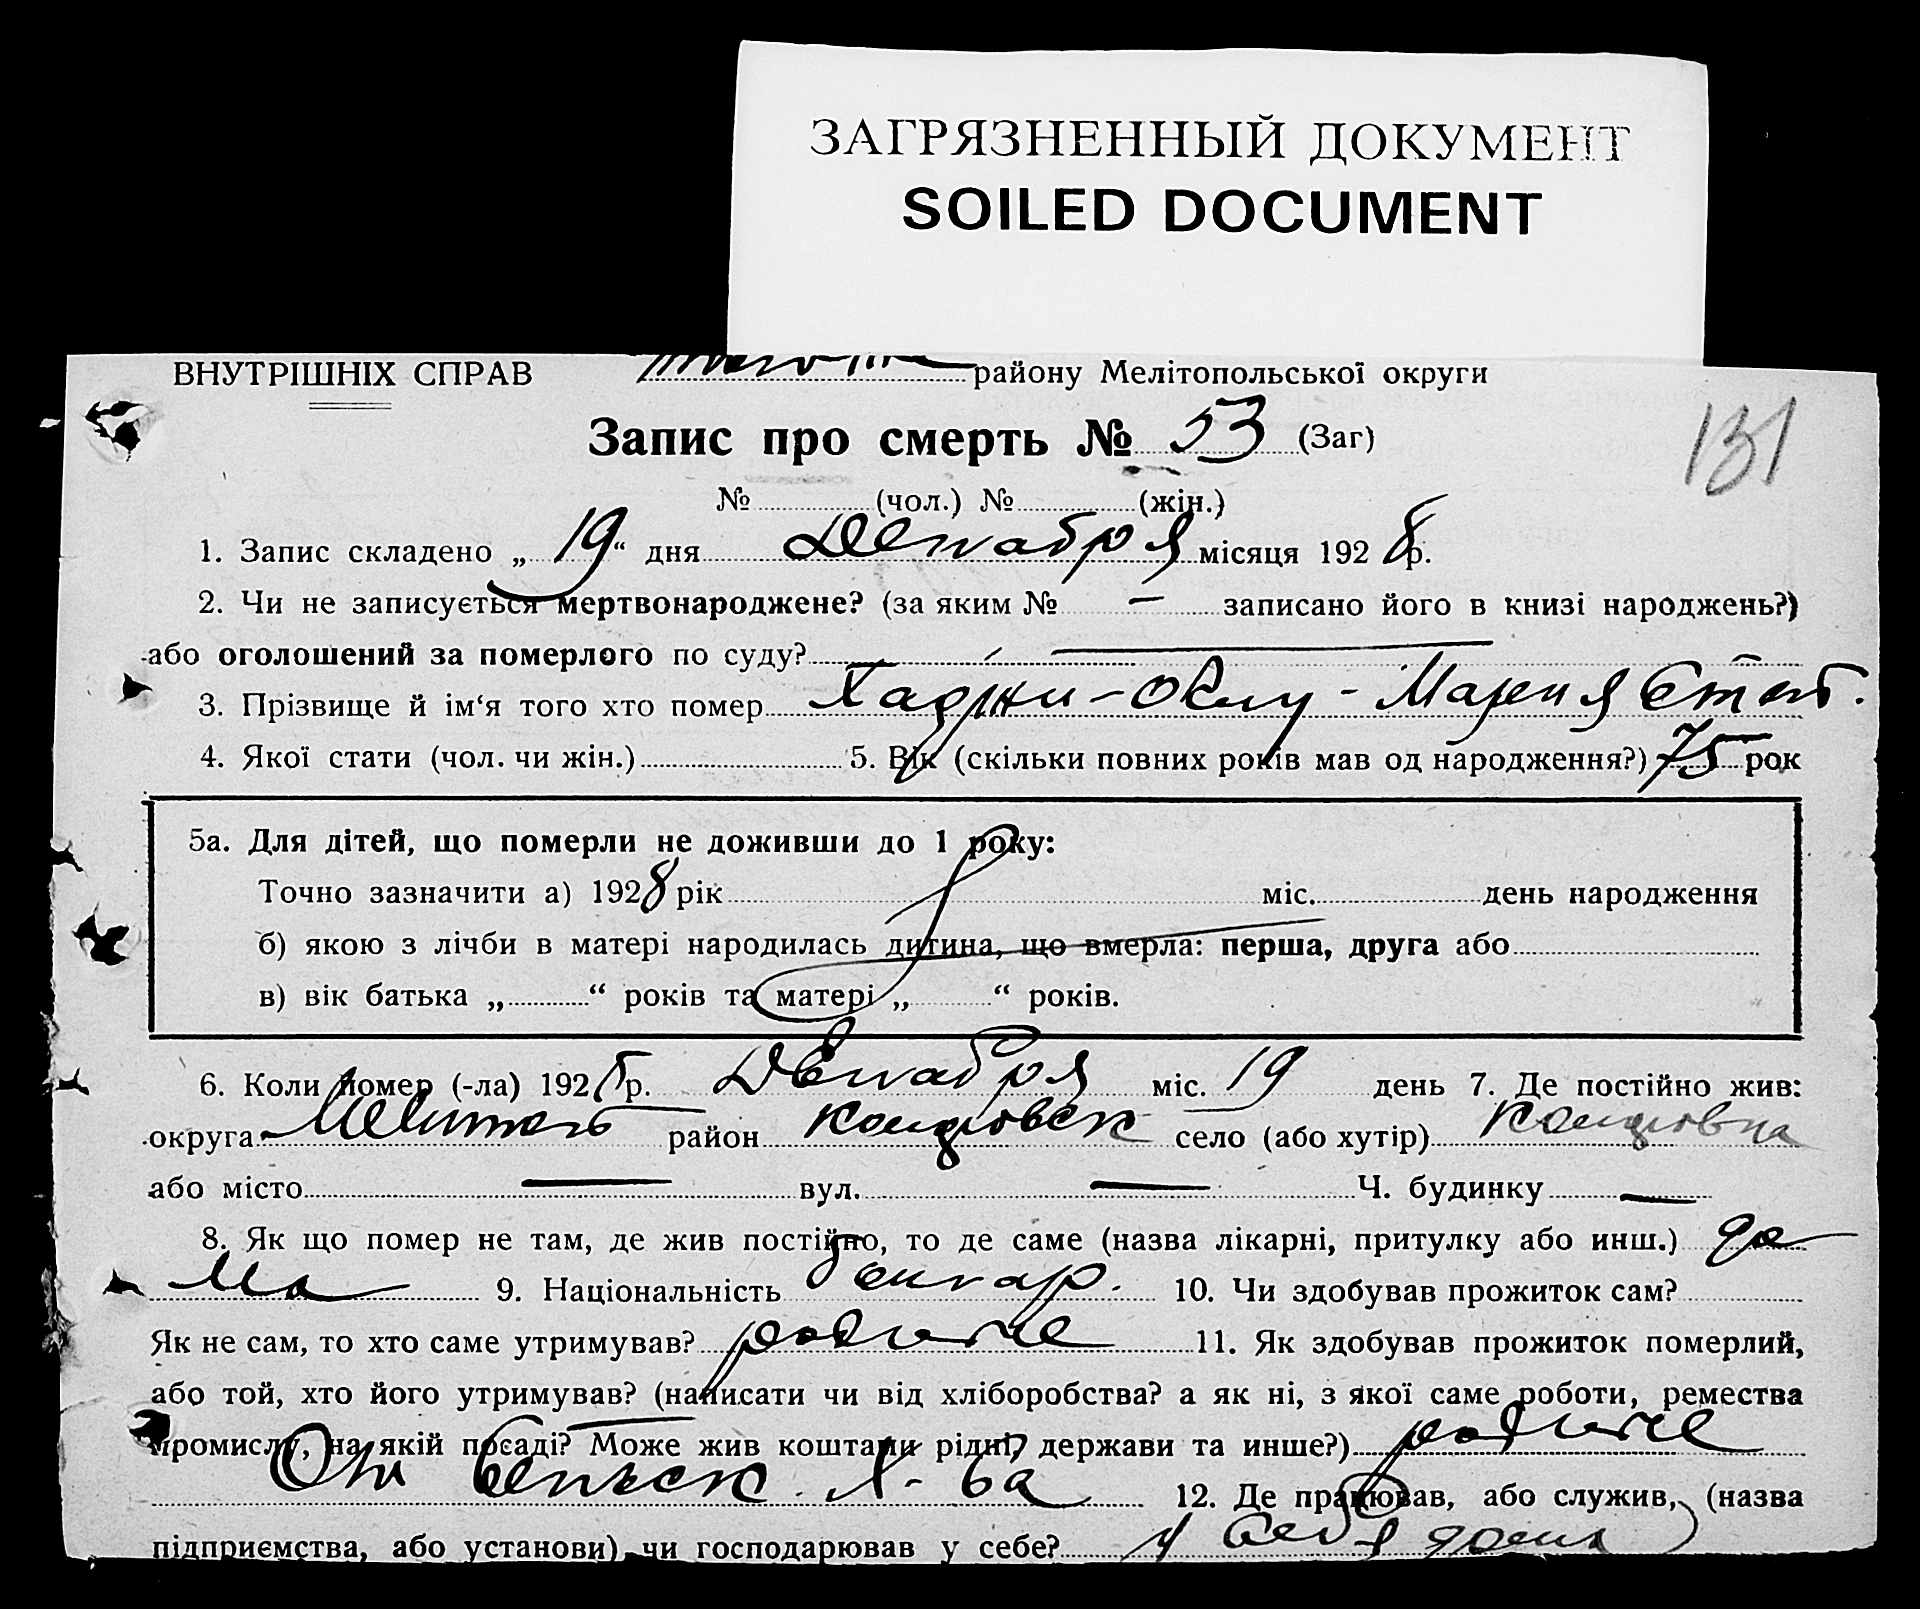 ЗАГРЯЗНЕННЫЙ ДОКУМЕНТ
SOILED DOCUMENT
ВНУТРІШНІХ СПРАВ району Мелітопольської округи
131
Запис про смерть № 53 (Заг)
№ (чол.) № (жін.)
1. Запис складено „ 19 “ дня Декабря місяця 1928 р.
2. Чи не записується мертвонароджене? (за яким № — записано його в книзі народжень?)
або оголошений за померлого по суду? —
3. Прізвище й ім‘я того хто помер Хаджи-Оглу - Мария Степ.
4. Якої стати (чол. чи жін.) 5. Вік (скільки повних років мав од народження?) 75 рок
5а. Для дітей, що померли не доживши до 1 року:
Точно зазначити а) 1928 рік міс. день народження
б) якою з лічби в матері народилась дитина, що вмерла: перша, друга або
в) вік батька „ “ років та матері „ “ років.
6. Коли помер (-ла) 1928 р. Декабря міс. 19 день 7. Де постійно жив:
округа Мелитоп район село (або хутір)
або місто — вул. — Ч. будинку —
8. Як що помер не там, де жив постійно, то де саме (назва лікарні, притулку або инш.) до
ма 9. Національність болгар. 10. Чи здобував прожиток сам?
Як не сам, то хто саме утримував? родные 11. Як здобував прожиток померлий,
або той, хто його утримував? (написати чи від хліборобства? а як ні, з якої саме роботи, ремества
промислу, на якій посаді? Може жив коштами рідні, держави та инше?) родные
От сельск. х-ва 12. Де працював, або служив, (назва
підприємства, або установи) чи господарював у себе? у себя дома